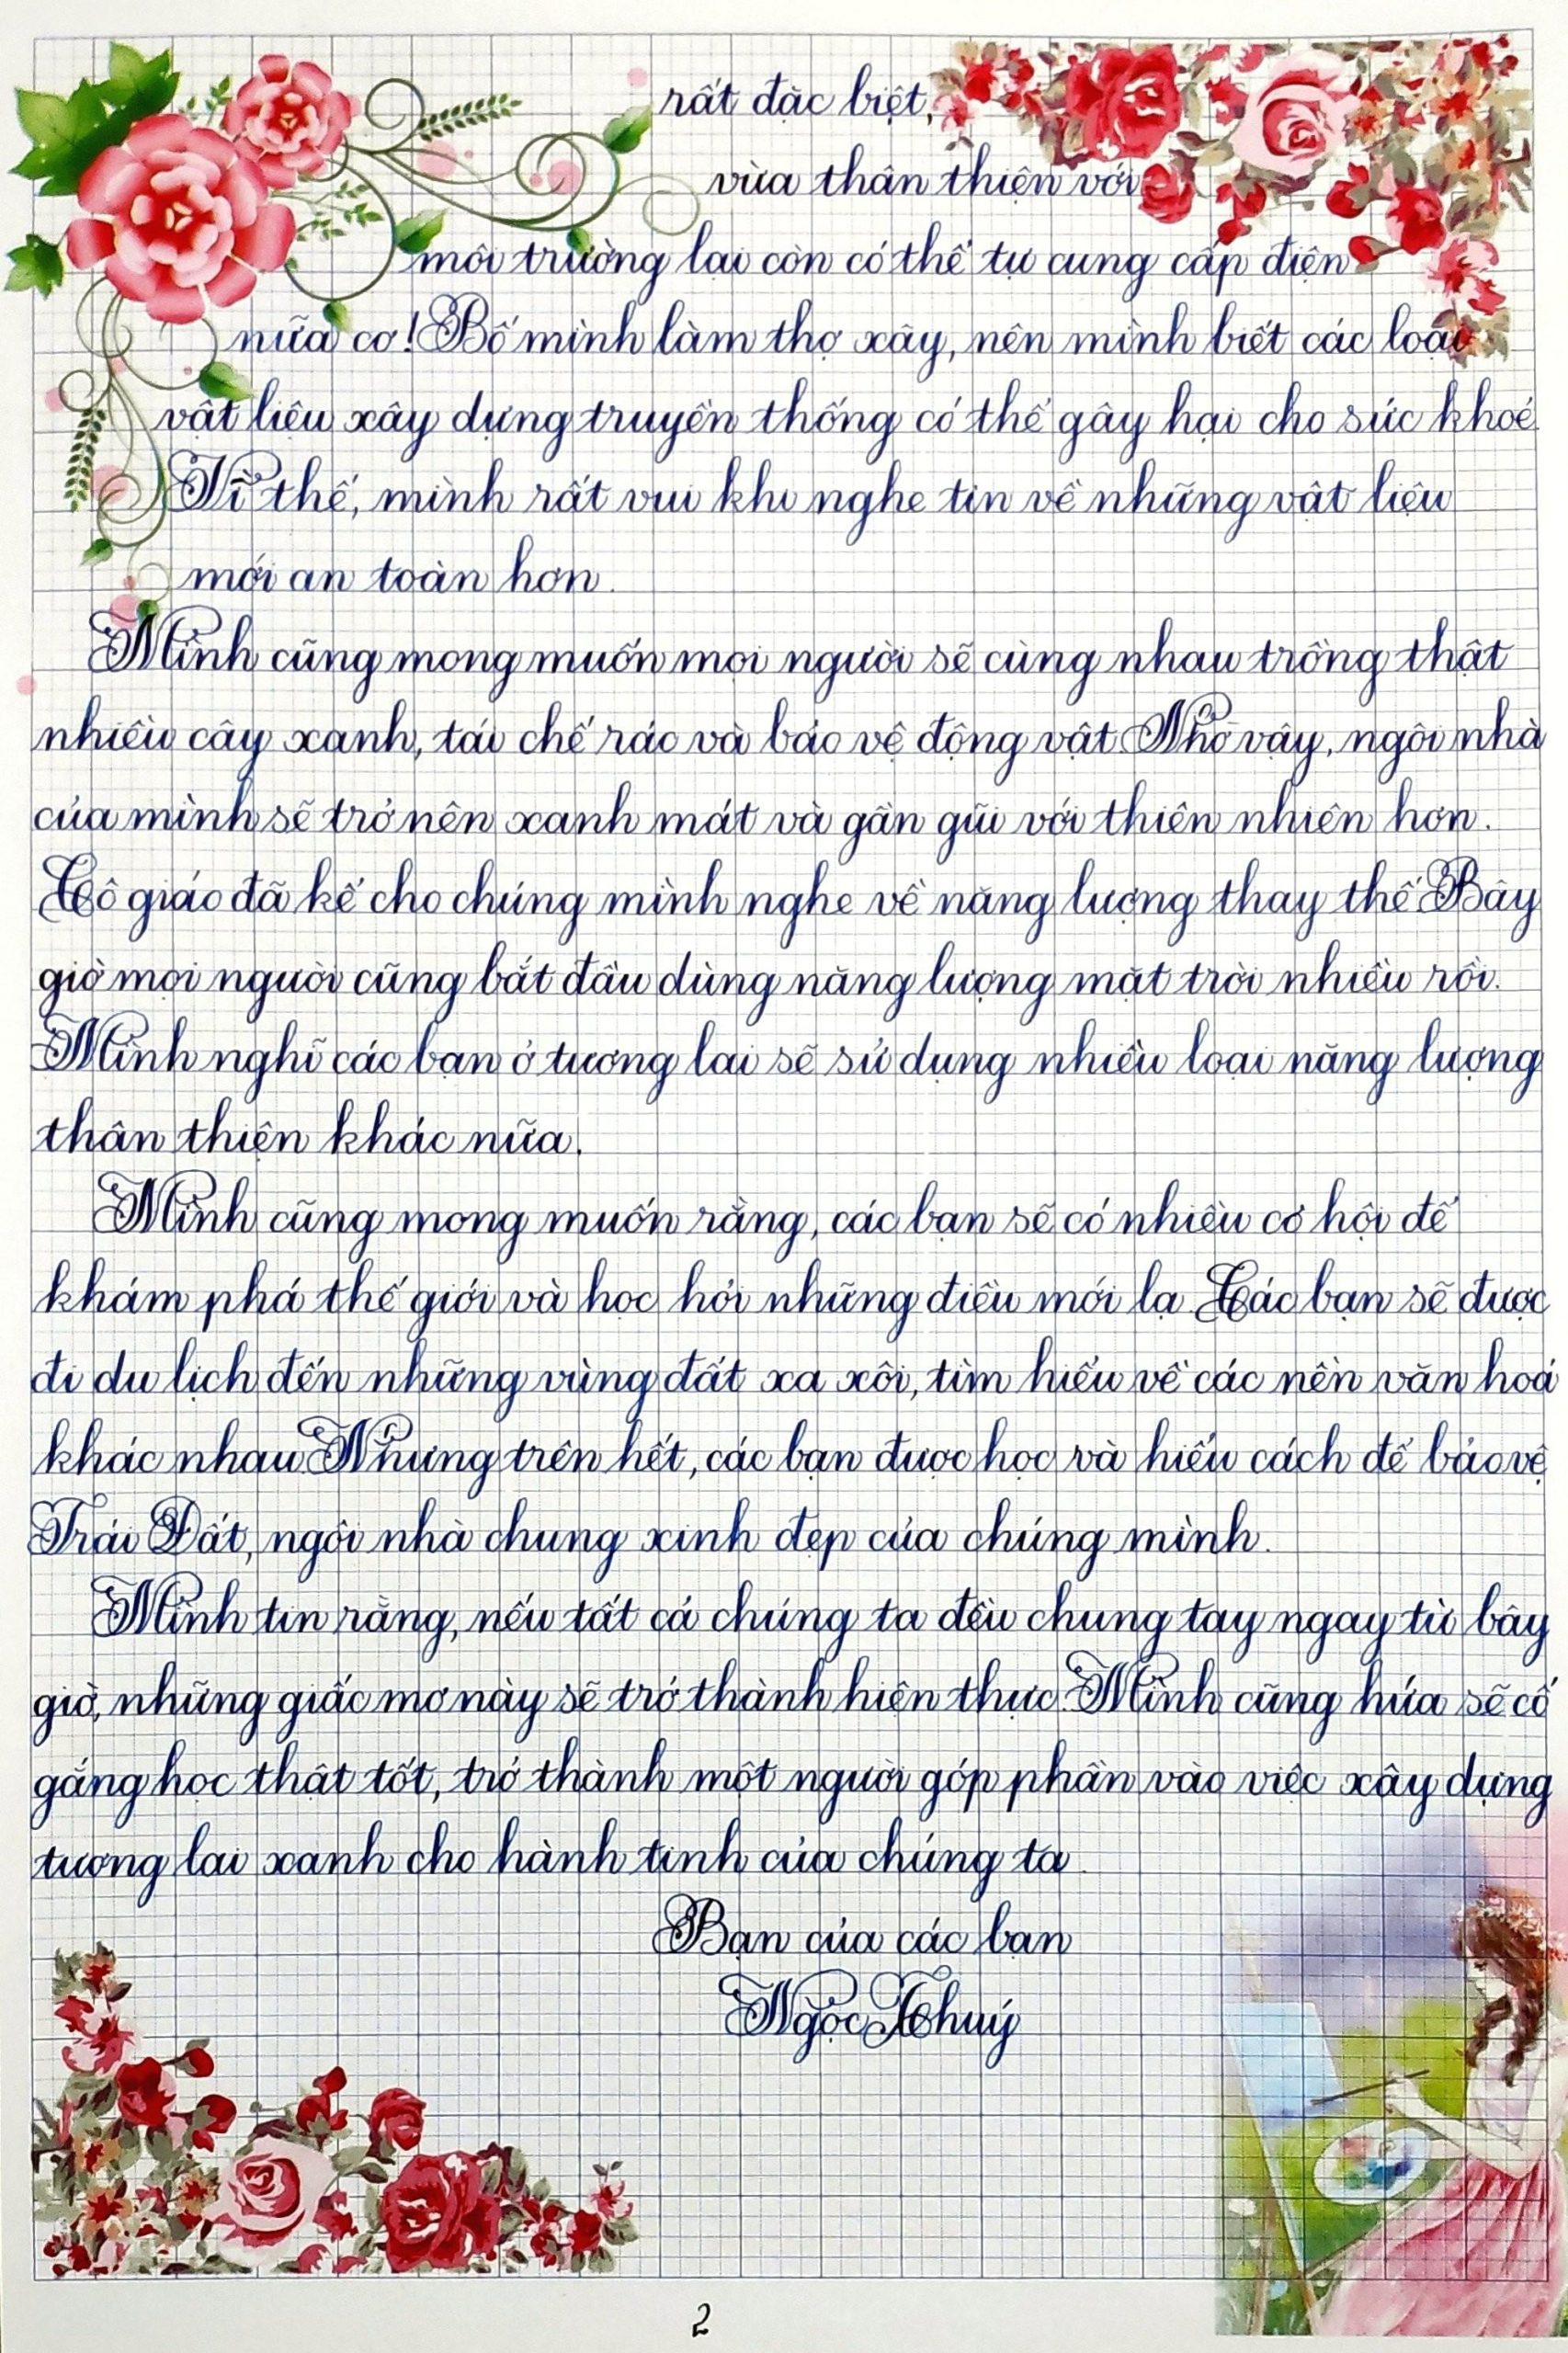 rất đặc biệt,
vừa thân thiện với
môi trường lại còn có thể tự cung cấp điện
nữa cơ! Bố mình làm thợ xây, nên mình biết các loại
vật liệu xây dựng truyền thống có thể gây hại cho sức khoẻ.
Vì thế, mình rất vui khi nghe tin về những vật liệu
mới an toàn hơn.
Mình cũng mong muốn mọi người sẽ cùng nhau trồng thật
nhiều cây xanh, tái chế rác và bảo vệ động vật. Nhờ vậy, ngôi nhà
của mình sẽ trở nên xanh mát và gần gũi với thiên nhiên hơn.
Cô giáo đã kể cho chúng mình nghe về năng lượng thay thế. Bây
giờ mọi người cũng bắt đầu dùng năng lượng mặt trời nhiều rồi.
Mình nghĩ các bạn ở tương lai sẽ sử dụng nhiều loại năng lượng
thân thiện khác nữa.
Mình cũng mong muốn rằng, các bạn sẽ có nhiều cơ hội để
khám phá thế giới và học hỏi những điều mới lạ. Các bạn sẽ được
đi du lịch đến những vùng đất xa xôi, tìm hiểu về các nền văn hoá
khác nhau. Nhưng trên hết, các bạn được học và hiểu cách để bảo vệ
Trái Đất, ngôi nhà chung xinh đẹp của chúng mình.
Mình tin rằng, nếu tất cả chúng ta đều chung tay ngay từ bây
giờ, những giấc mơ này sẽ trở thành hiện thực. Mình cũng hứa sẽ cố
gắng học thật tốt, trở thành một người góp phần vào việc xây dựng
tương lai xanh cho hành tinh của chúng ta.
Bạn của các bạn
Ngọc Thuý
2